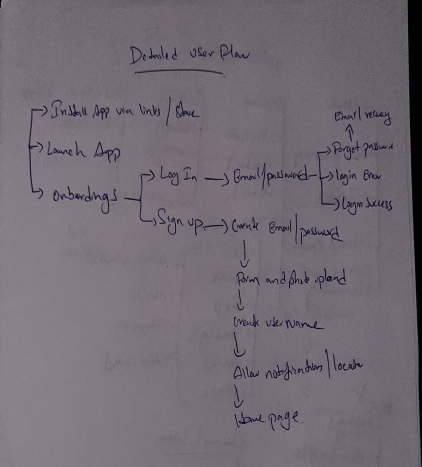 Detailed user flow
Install App via links / store
Launch App
Onboardings
Log In
Email/password
Email/recovery
Forgot password
login Error
Login success
Sign up
Create Email/password
Form and photo upload
Create username
Allow notifications/location
Home page.